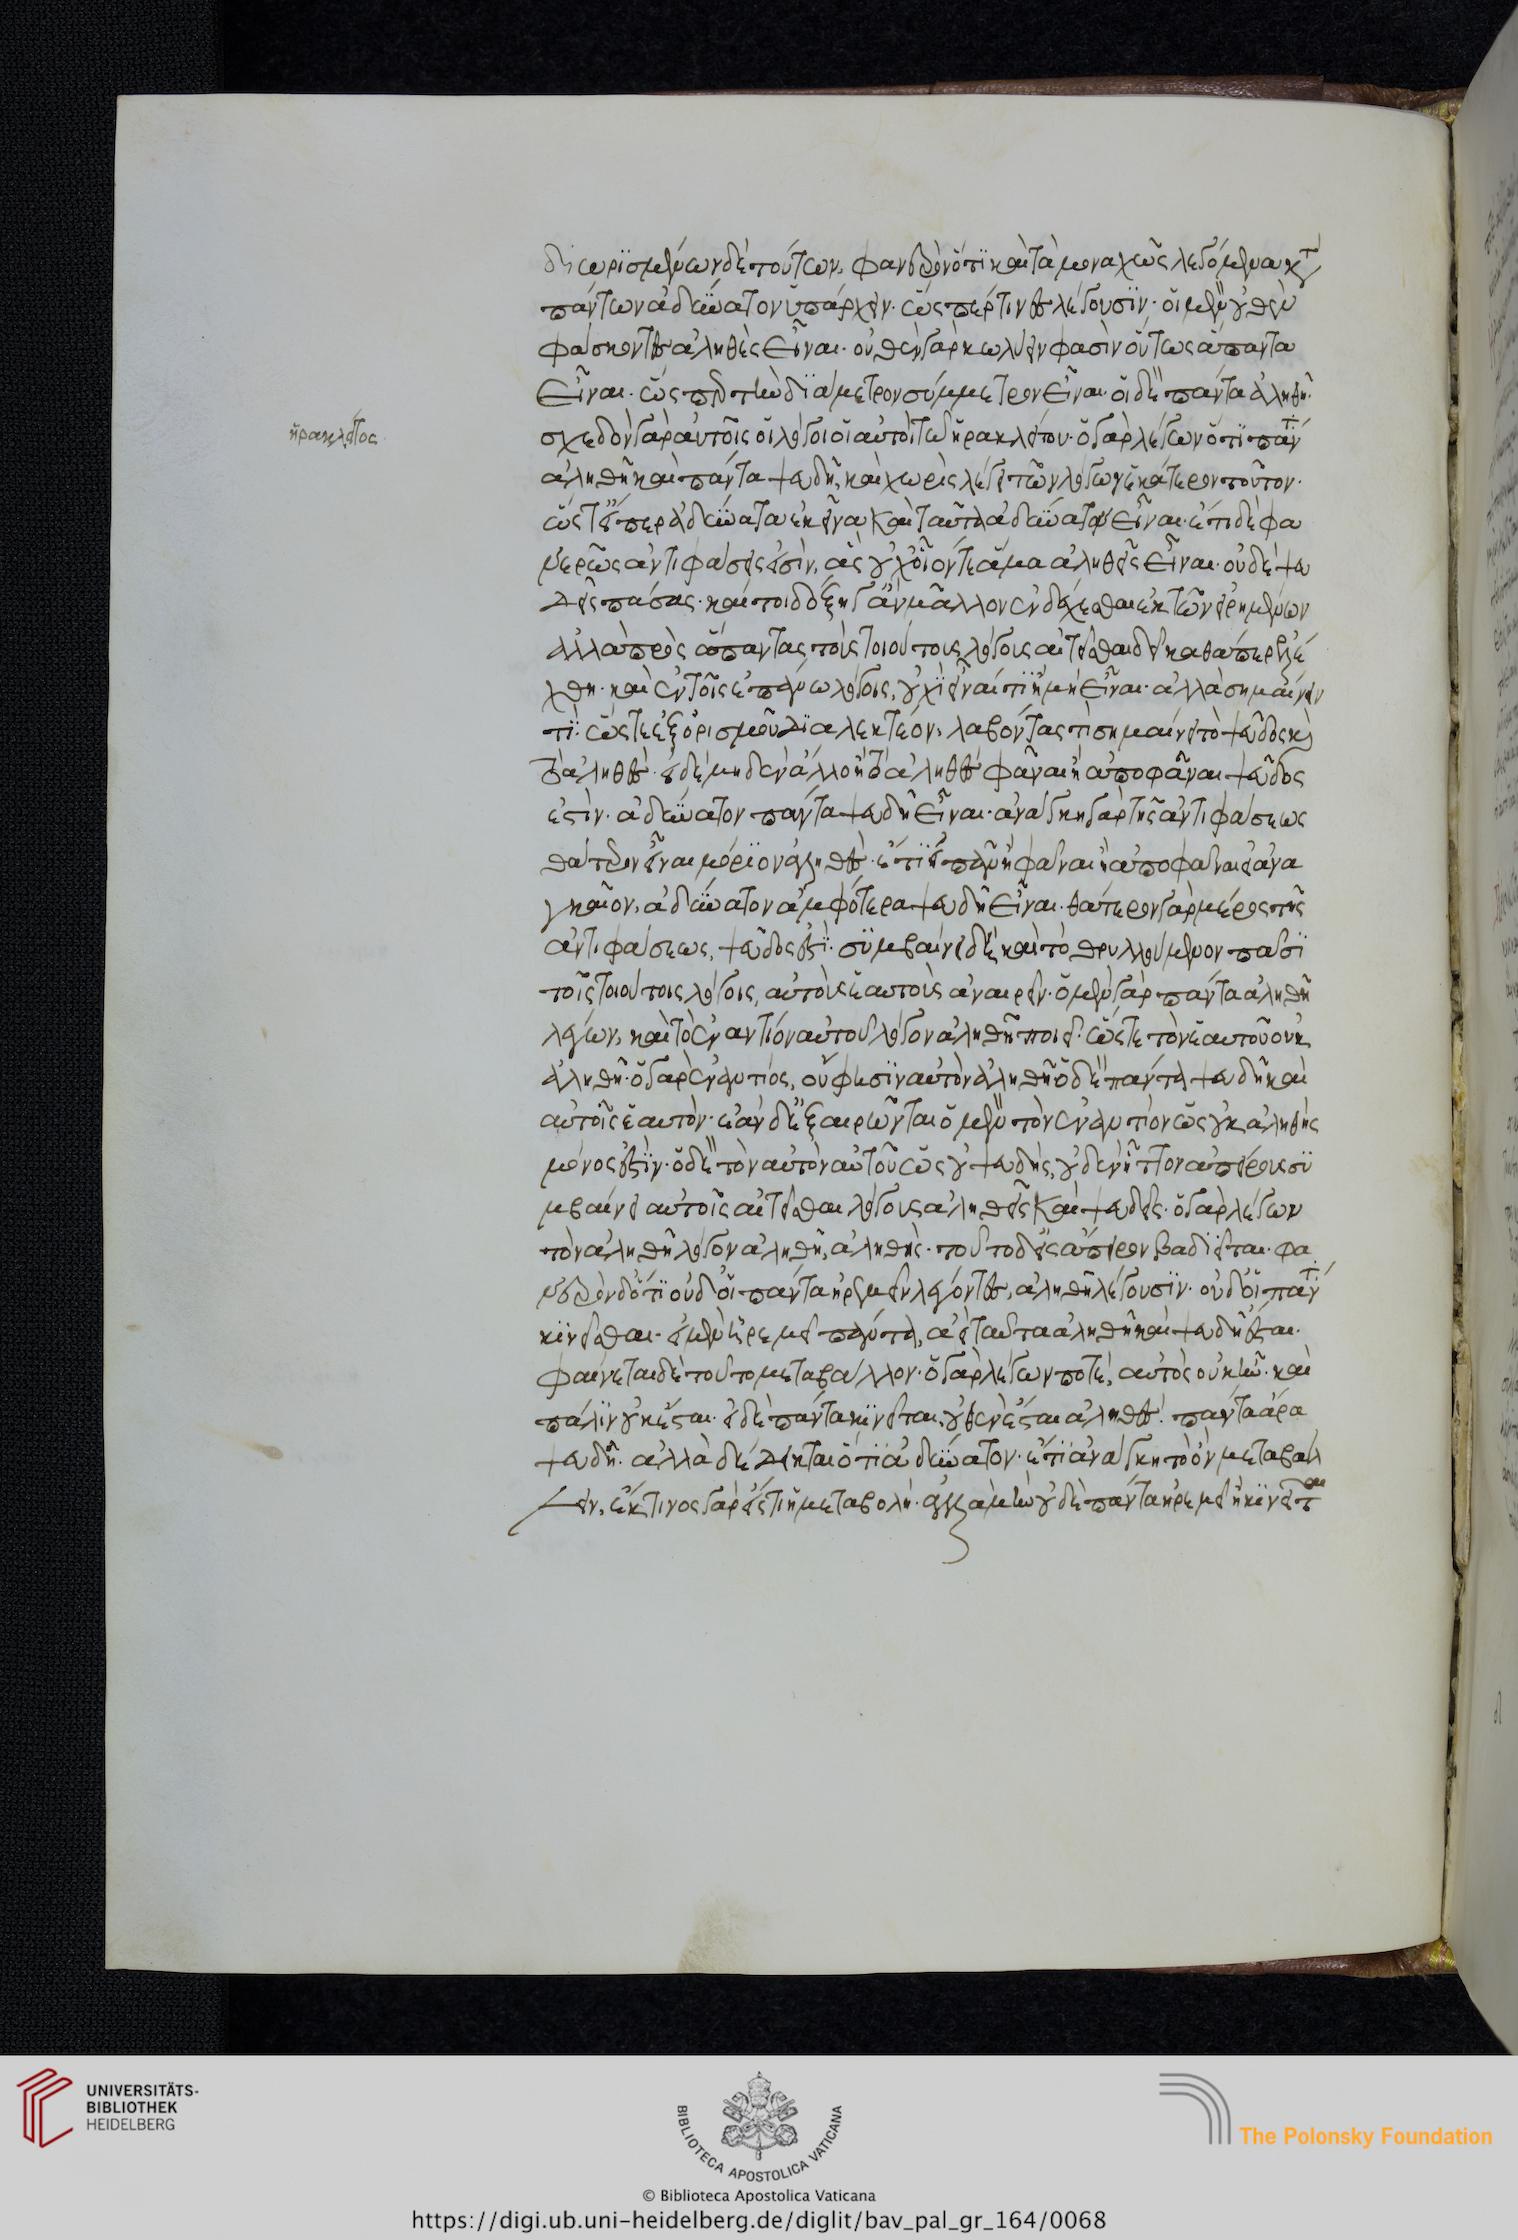 διωρισμένων δὲ τούτων, φανερὸν ὅτι καὶ τὰ μοναχῶς λεγόμενα κατὰ
πάντων ἀδύνατον ὑπάρχειν. ὥσπερ τινὲς λέγουσιν. οἱ μὲν οὐθὲν
φάσκοντες ἀληθὲς εἶναι. οὐθὲν γὰρ κωλύειν φασὶν οὕτως ἅπαντα
εἶναι. ὥσπερ τὴν διάμετρον σύμμετρον εἶναι. οἱ δὲ πάντα ἀληθῆ.
ἡράκλειτος
σχεδὸν γὰρ αὐτοῖς οἱ λόγοι οἱ αὐτοὶ τῶ ἡρακλείτου. ὁ γὰρ λέγων ὅτι πάντα
ἀληθῆ καὶ πάντα ψευδῆ, καὶ χωρὶς λέγει τῶν λόγων ἑκάτερον τοῦτον.
ὥστ' εἴπερ ἀδύνατα ἐκεῖνα καὶ ταῦτα ἀδύνατον εἶναι. ἔτι δὲ φα
νερῶς ἀντιφάσεις εἰσὶν, ἃς οὐχ οἷόν τε ἅμα ἀληθεῖς εἶναι. οὐδὲ ψευ
δεῖς πάσας. καίτοι δόξειέ γ' ἂν μᾶλλον ἐνδέχεσθαι ἐκ τῶν εἰρημένων
ἀλλὰ πρὸς ἅπαντας τοὺς τοιούτους λόγους αἰτεῖσθαι δεῖ καθάπερ ἐλέ
χθη. καὶ ἐν τοῖς ἐπάνω λόγοις, οὐχὶ εἶναί τι ἢ μὴ εἶναι. ἀλλὰ σημαίνειν
τι. ὥστε ἐξ ὁρισμοῦ διαλεκτέον, λαβόντας τὶ σημαίνει τὸ ψεῦδος καὶ
τὸ ἀληθές. εἰ δὲ μηδὲν ἄλλο ἢ τὸ ἀληθὲς φάναι ἢ ἀποφάναι ψεῦδος
ἐστὶν. ἀδύνατον πάντα ψευδῆ εἶναι. ἀνάγκη γὰρ τῆς ἀντιφάσεως
θάτερον εἶναι μόριον ἀληθές. ἔτι εἰ πᾶν ἢ φάναι ἢ ἀποφάναι ἀνα
γκαῖον, ἀδύνατον ἀμφότερα ψευδῆ εἶναι. θάτερον γὰρ μέρος τῆς
ἀντιφάσεως, ψεῦδος ἐστί. συμβαίνει δὲ καὶ τὸ θρυλλούμενον πᾶσι
τοῖς τοιούτοις λόγοις, αὐτοὺς ἑαυτοὺς ἀναιρεῖν. ὁ μὲν γὰρ πάντα ἀληθῆ
λέγων, καὶ τὸν ἐναντίον αὐτοῦ λόγον ἀληθῆ ποιεῖ. ὥστε τὸν ἑαυτοῦ οὐκ
ἀληθῆ. ὁ γὰρ ἐναντίος, οὔ φησιν αὐτὸν ἀληθῆ ὁ δὲ πάντα ψευδῆ καὶ
αὐτὸς ἑαυτόν. ἐὰν δ' ἐξαιρῶνται ὁ μὲν τὸν ἐναντίον ὡς οὐκ ἀληθὴς
μόνος ἐστὶν. ὁ δὲ τὸν αὐτὸν αὑτοῦ ὡς οὐ ψευδὴς, οὐδὲν ἧττον ἀπείρους συ
μβαίνει αὐτοῖς αἰτεῖσθαι λόγους ἀληθεῖς καὶ ψευδεῖς. ὁ γὰρ λέγων
τὸν ἀληθῆ λόγον ἀληθῆ, ἀληθὴς. τοῦτο δ' εἰς ἄπειρον βαδιεῖται. φα
νερὸν δ' ὅτι οὐδ' οἱ πάντα ἠρεμεῖν λέγοντες, ἀληθῆ λέγουσιν. οὐδ' οἱ πάντα
κινεῖσθαι. εἰ μὲν ἠρεμεῖ πάντα, ἀεὶ ταῦτα ἀληθῆ καὶ ψευδῆ ἔσται.
φαίνεται δὲ τοῦτο μεταβάλλον. ὁ γὰρ λέγων ποτὲ, αὐτὸς οὐκ ἦν. καὶ
πάλιν οὐκ ἔσται. εἰ δὲ πάντα κινεῖται, οὐθὲν ἔσται ἀληθές. πάντα ἄρα
ψευδῆ. ἀλλὰ δέδεικται ὅτι ἀδύνατον. ἔτι ἀνάγκη τὸ ὂν μεταβάλ
λειν, ἔκ τινος γὰρ εἴς τι ἡ μεταβολή. ἀλλὰ μὴν οὐδὲ πάντα ἠρεμεῖ ἢ κινεῖται
UNIVERSITÄTS-
BIBLIOTHEK
HEIDELBERG
BIBLIOTECA APOSTOLICA VATICANA
The Polonsky Foundation
© Biblioteca Apostolica Vaticana
https://digi.ub.uni-heidelberg.de/diglit/bav_pal_gr_164/0068